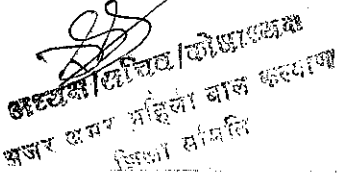 अध्यक्ष/सचिव/कोषाध्यक्ष
अजर अमर महिला बाल कल्याण
शिक्षा समिति